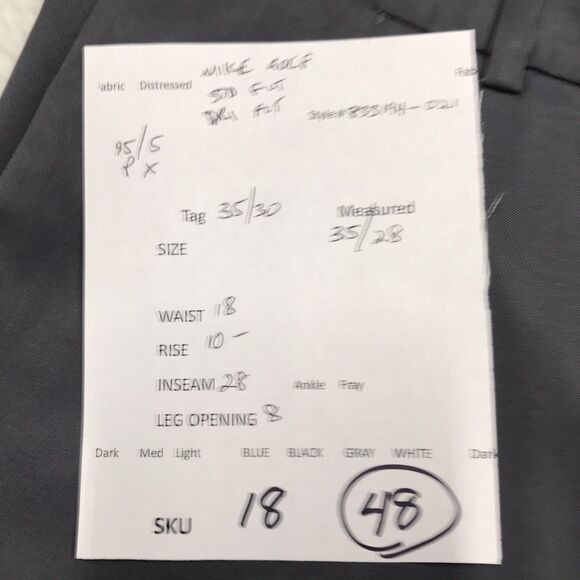 NIKE GOLF
Fabric Distressed STD FIT Fab
DRI FIT Style# 833194-021
95/5
P X
Tag 35/30 Measured
35/28
SIZE
WAIST 18
RISE 10 -
INSEAM 28 Ankle Fray
LEG OPENING 8
Dark Med Light BLUE BLACK GRAY WHITE Dark
SKU 18 48